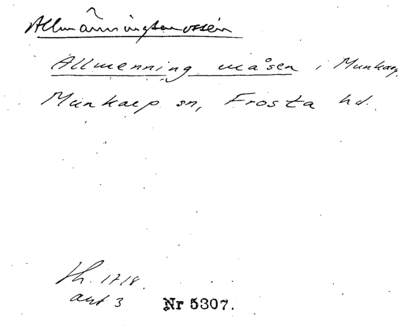 Allmänningsmossen
Allmenning måsen i Munkarp
Munkarp sn, Frosta hd.
Lh. 1718.
akt 3 Nr 5307.